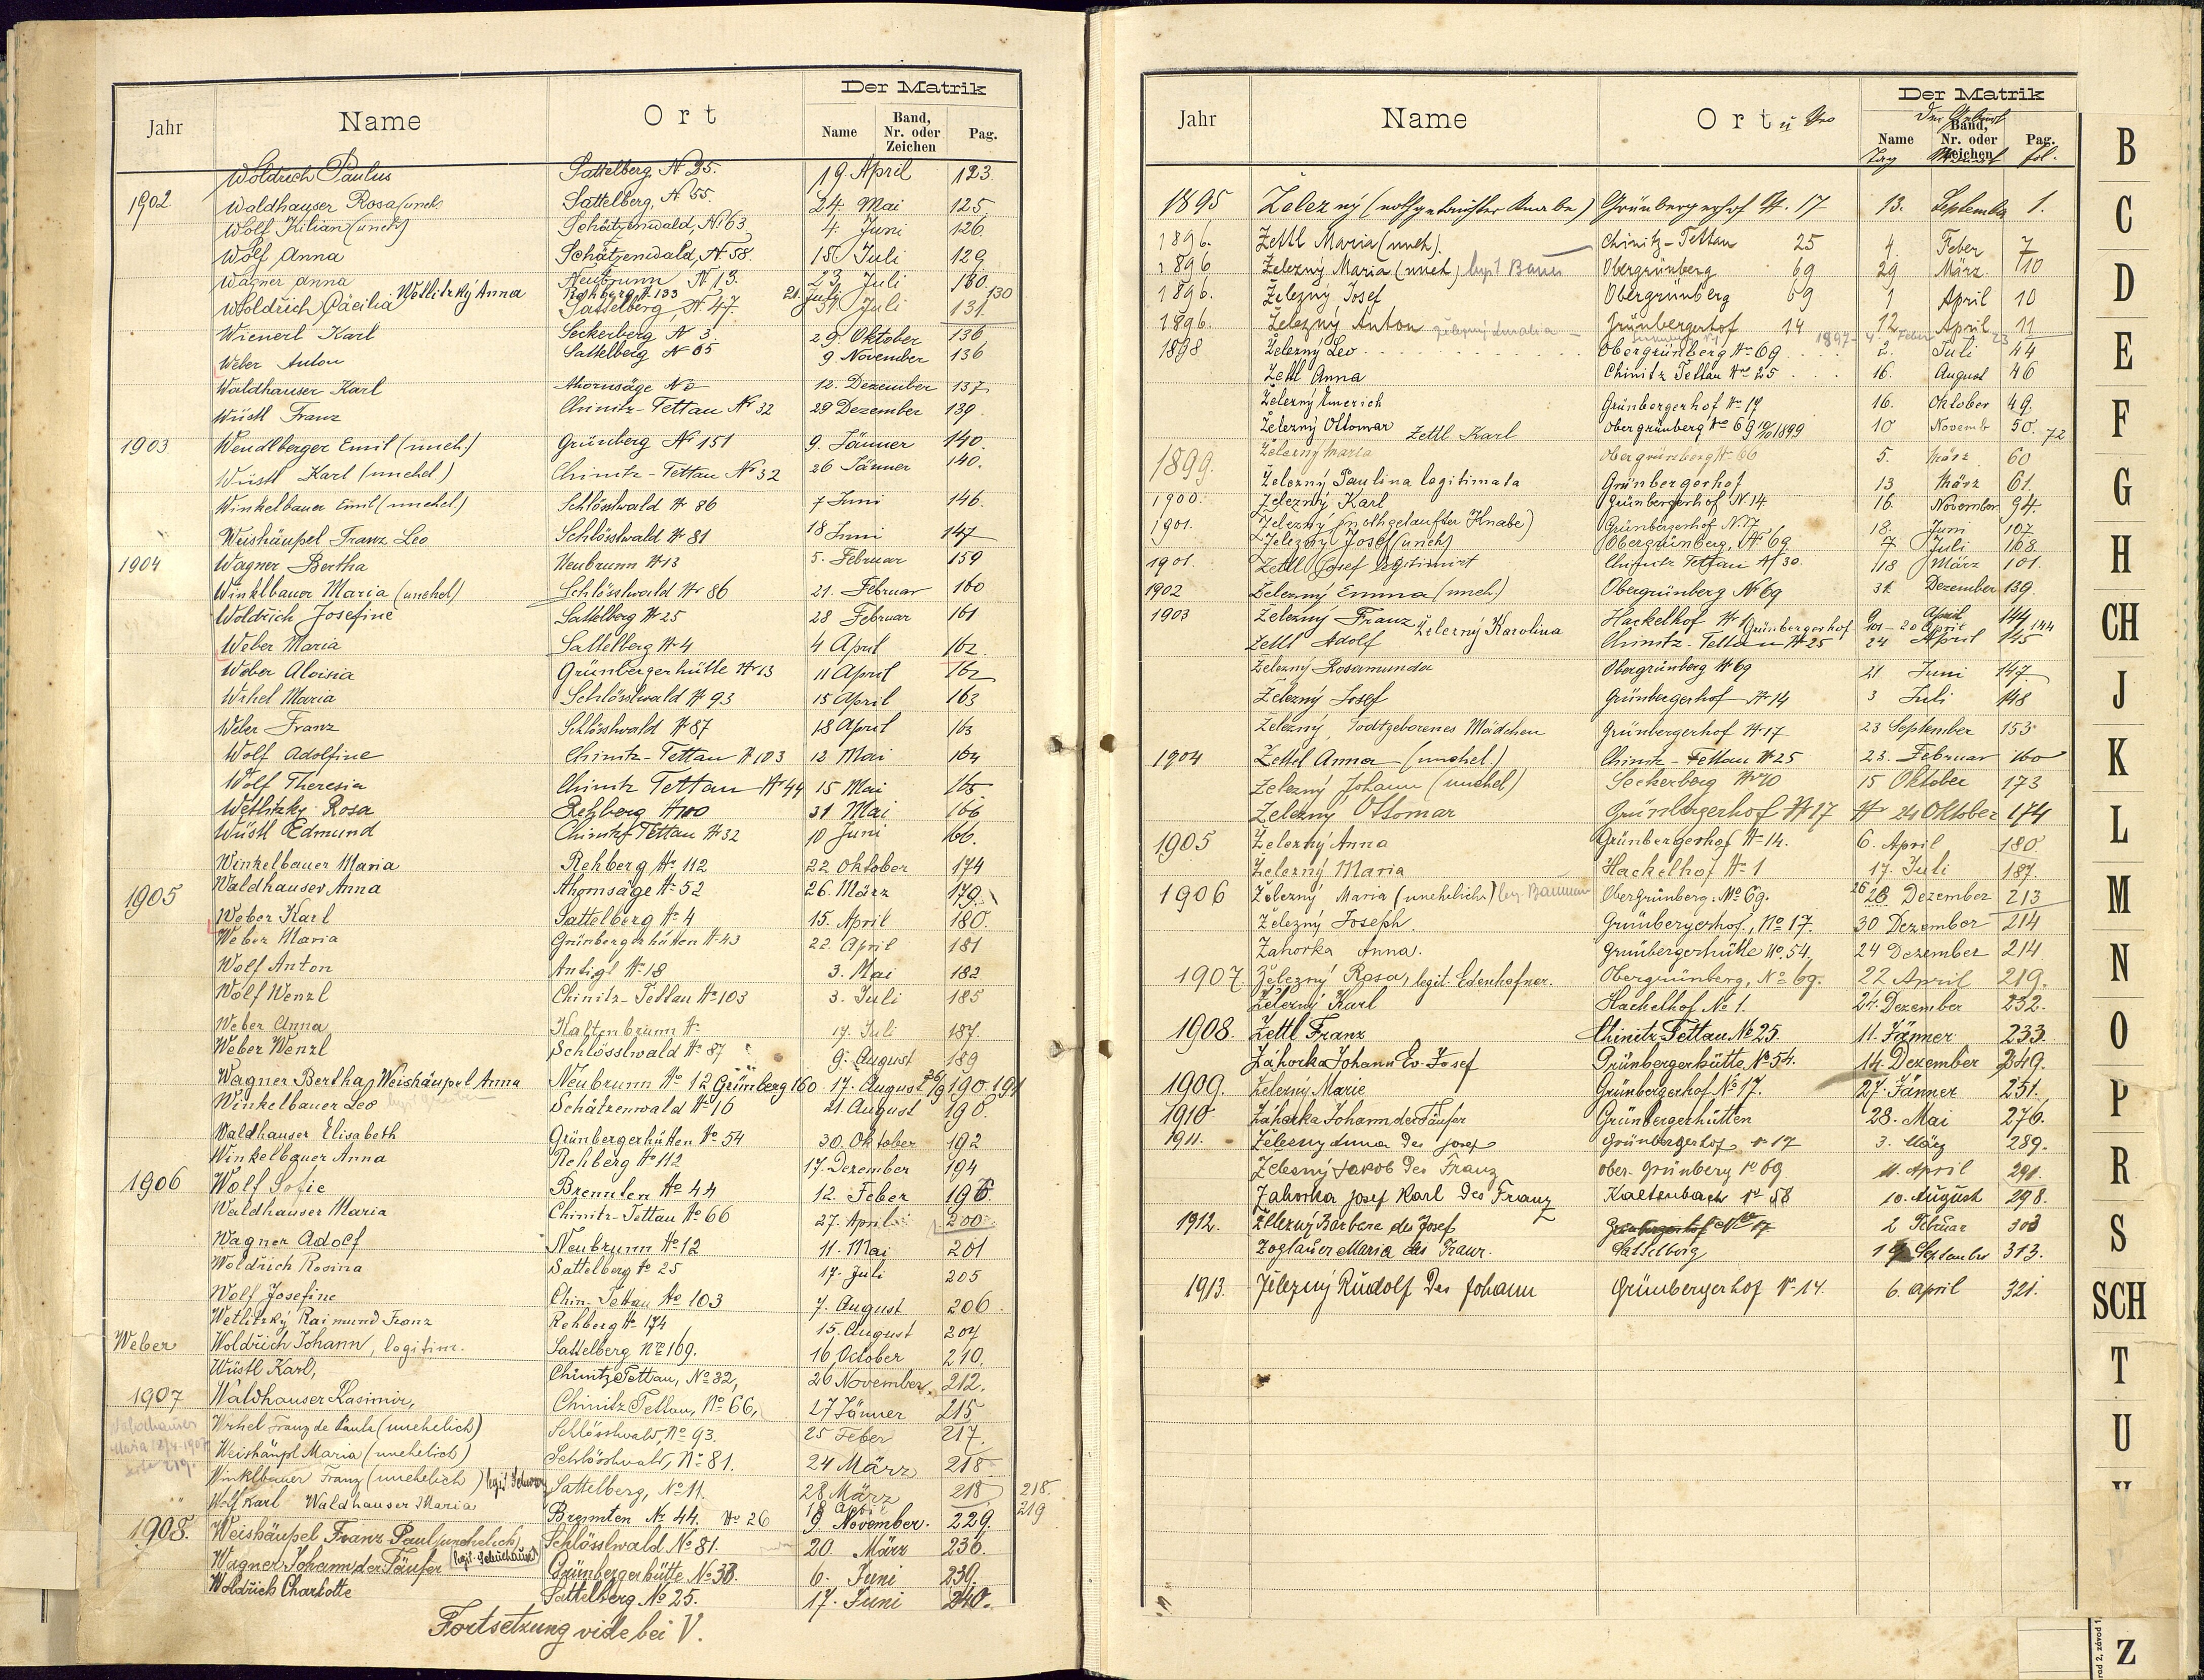 Der Matrik
Jahr Name Ort Name Band, Nr. oder Zeichen Pag.
Woldrich Paulus Sattelberg, N 25. 19. April 123
1902. Waldhauser Rosa (uneh. Sattelberg, N 55. 24. Mai 125
Wolf Kilian (uneh) Schätzenwald, N. 63 4. Juni 126
Wolf Anna Schätzenwald, N 58. 15 Juli 129
Wagner Anna Neubrunn N 13. 23 Juli 130
Wetlitzký Anna Rehberg N 133 21. Juli 130
Woldrich Cäcilia Sattelberg, N 47. 31 Juli 131
Wienerl Karl Seckerberg N 3. 29. Oktober 136
Weber Anton Sattelberg N 65 9. November 136
Waldhauser Karl Ahornsäge No 12. Dezember 137
Wüstl Franz Chinitz-Tettau Nr 32 29 Dezember 139.
1903. Wendlberger Emil (uneh.) Grünberg Nr 151 9. Jänner 140.
Wüstl Karl (unehel.) Chinitz-Tettau Nr 32 26 Jänner 140.
Winkelbauer Emil (unehel.) Schlösslwald Nr 86 7 Juni 146.
Weishäupel Franz Leo Schlösslwald Nr 81 18 Juni 147
1904 Wagner Bertha Neubrunn Nr 13 5. Februar 159
Winklbauer Maria (unehel) Schlösslwald Nr 86 21. Februar 160
Woldrich Josefine Sattelberg Nr 25 28 Februar 161
Weber Maria Sattelberg Nr 4 4 April 162
Weber Aloisia Grünbergerhütte Nr 13 11 April 162
Wrhel Maria Schlösslwald Nr 93 15 April 163
Weber Franz Schlösslwald Nr 87 18 April 163
Wolf Adolfine Chinitz-Tettau Nr 103 12 Mai 164
Wolf Theresia Chinitz Tettau Nr 44 15 Mai 165
Wetlitzky Rosa Rehberg Nr 100 31 Mai 166
Wüstl Edmund Chinitz Tettau Nr 32 10 Juni 166.
Winkelbauer Maria Rehberg No 112 22 Oktober 174
1905 Waldhauser Anna Ahornsäge No 52 26. März 179.
Weber Karl Sattelberg No 4 15. April 180.
Weber Maria Grünbergerhütten No 43 22. April 181
Wolf Anton Antigl No 18 3. Mai 182
Wolf Wenzl Chinitz-Tettau No 103 3. Juli 185
Weber Anna Kaltenbrunn No 17. Juli 187.
Weber Wenzl Schlösslwald No 87 9. August 189
Wagner Bertha, Weishäupl Anna Neubrunn No 12 Grünberg 160 17. August 26/9 190. 191
Winkelbauer Leo Schätzenwald No 16 21. August 190.
Waldhauser Elisabeth Grünbergerhütten No 54 30. Oktober 192
Winkelbauer Anna Rehberg No 112 17. Dezember 194
1906 Wolf Sofie Brennten No 44 12. Feber 196.
Waldhauser Maria Chinitz-Tettau No 66 27. April 200
Wagner Adolf Neubrunn No 12 11. Mai 201
Woldrich Rosina Sattelberg No 25 17. Juli 205
Wolf Josefine Chin-Tettau No 103 7. August 206.
Wetlitzký Raimund Franz Rehberg No 174 15. August 207
Weber Woldrich Johann, legitim. Sattelberg No 169. 16. October 210.
Wüstl Karl, Chinitz Tettau, No 32, 26 November. 212.
1907 Waldhauser Kasimir, Chinitz Tettau, No 66, 27 Jänner 215
Waldhauser Maria 18/4. 1907 Seite 219.
Wrhel Franz de Paula (unehelich) Schlösslwald, No 93. 25 Feber 217.
Weishäupl Maria (unehelich) Schlösslwald, No 81. 24 März 218
Winklbauer Franz (unehelich) Sattelberg, No 11. 28 März 218 218.
Wolf Karl Waldhauser Maria Brennten No 44. No 26 18 April 9 November. 229. 219
1908. Weishäupel Franz Paul (unehelich) Schlösslwald No 81. 20. März 236.
Wagner Johann der Täufer Grünbergerhütte No 33. 6. Juni 239.
Woldrich Charlotte Sattelberg No 25. 17. Juni 240.
Fortsetzung vide bei V.
Der Matrik
Jahr Name Ort u Nro Name Band, Nr. oder Zeichen Pag.
Der Geburt
Tag Monat fol.
1895 Železný (nothgetaufter Knabe) Grünbergerhof N. 17 13. September 1.
1896. Zettl Maria (uneh). Chinitz-Tettau 25 4. Feber 7
1896 Železný Maria (uneh) Obergrünberg 69 29 März 10
1896. Železný Josef Obergrünberg 69 1 April 10
1896. Železný Anton Grünbergerhof 14 12. April 11
1897 4. Feber 23
1898 Železný Leo Obergrünberg No 69 2. Juli 44
Zettl Anna Chinitz Tettau No 25 16. August 46
Železný Emerich Grünbergerhof No 17 16. Oktober 49.
Železný Ottomar Zettl Karl Obergrünberg No 69 1899 10 Novemb 50. 72
1899. Železný Maria Obergrünberg No 66 5. März 60
Železný Paulina legitimata Grünbergerhof 13 März 61.
1900. Železný Karl Grünbergerhof N. 14. 16. November 94.
1901. Železný (nothgetaufter Knabe) Grünbergerhof N. 17 18. Juni 107.
Železný Josef (uneh) Obergrünberg, N 69 7 Juli 108.
1901. Zettl Josef legitimirt Chinitz Tettau N 30. 18 März 101.
1902 Železný Emma (uneh.) Obergrünberg Nr 69 31. Dezember 139.
1903 Železný Franz Hackelhof Nr 1 9 April 144
Železný Karolina Grünbergerhof 20 April 144
Zettl Adolf Chinitz-Tettau Nr 25 24 April 145
Železný Rosamunda Obergrünberg Nr 69 21 Juni 147
Železný Josef Grünbergerhof Nr 14 3 Juli 148
Železný, Todtgeborenes Mädchen Grünbergerhof Nr 17 23 September 153
1904 Zettel Anna (unehel.) Chinitz-Tettau Nr 25 23. Februar 160
Železný Johann (unehel) Seckerberg Nr 70 15 Oktober 173
Železný Ottomar Grünbergerhof Nr 17 24 Oktober 174
1905 Železný Anna Grünbergerhof No 14. 6. April 180.
Železný Maria Hackelhof No 1 17. Juli 187.
1906 Železný Maria (unehelich) Obergrünberg. No 69. 26 Dezember 213
Železný Joseph. Grünbergerhof, No 17. 30 Dezember 214
Zahorka Anna. Grünbergerhütte No 54. 24 Dezember 214
1907. Železný Rosa, legit. Edenhofner. Obergrünberg, No 69. 22 April 219.
Železný Karl Hackelhof No 1. 24. Dezember 232.
1908. Zettl Franz Chinitz-Tettau No 25. 11. Jänner 233.
Záhorka Johann Ev. Josef Grünbergerhütte No 54. 14. Dezember 249.
1909. Železný Marie Grünbergerhof No 17. 27. Jänner 251.
1910 Záhorka Johann der Täufer Grünbergerhütten 28. Mai 276.
1911. Železny Anna des Josef Grünbergerhof No 17 3. März 289.
Železný Jakob des Franz Ober-Grünberg No 69 11. April 291.
Zahorka Josef Karl des Franz Kaltenbach No 58 10. August 298.
1912. Železný Barbara des Josef Grünbergerhof No 17 2 Februar 303
Zoglauer Maria des Franz. Sattelberg 19. September 313.
1913. Železný Rudolf des Johann Grünbergerhof No 14. 6. April 321.
B
C
D
E
F
G
H
CH
J
K
L
M
N
O
P
R
S
SCH
T
U
Z